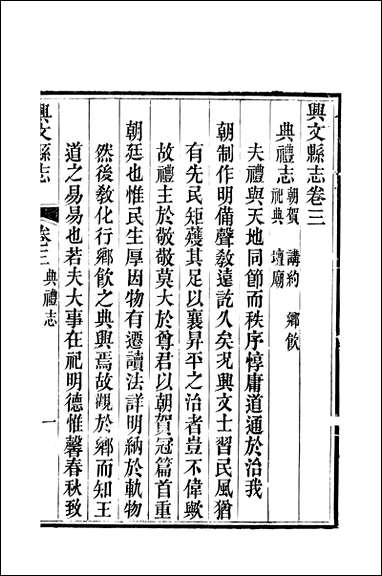 興文縣志卷三
典禮志 朝賀 講約 鄉飲
祀典 壇廟
夫禮與天地同節而秩序惇庸道通於治我
朝制作明備聲敎遠訖久矣況興文士習民風猶
有先民矩矱其足以襄昇平之治者豈不偉歟
故禮主於敬敬莫大於尊君以朝賀冠篇首重
朝廷也惟民生厚因物有遷讀法詳明納於軌物
然後敎化行鄉飲之典興焉故觀於鄉而知王
道之易易也若夫大事在祀明德惟馨春秋致
興文縣志
卷三 典禮志
一